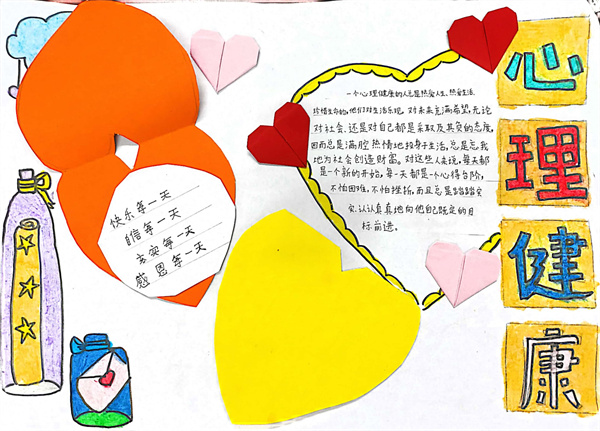 心
理
健
康
一个心理健康的人总是热爱人生、热爱生活、
珍惜生命的,他们对生活乐观,对未来充满希望,无论
对社会、还是对自己都是采取及其负的态度,
因而总是满腔热情地投身于生活,总是忘我
地为社会创造财富。对这些人来说,每天都
是一个新的开始,每一天都是一个心得台阶,
不怕困难,不怕挫折,而且总是踏踏实
实、认认真真地向他自己既定的目
标前进。
快乐每一天
自信每一天
充实每一天
感恩每一天